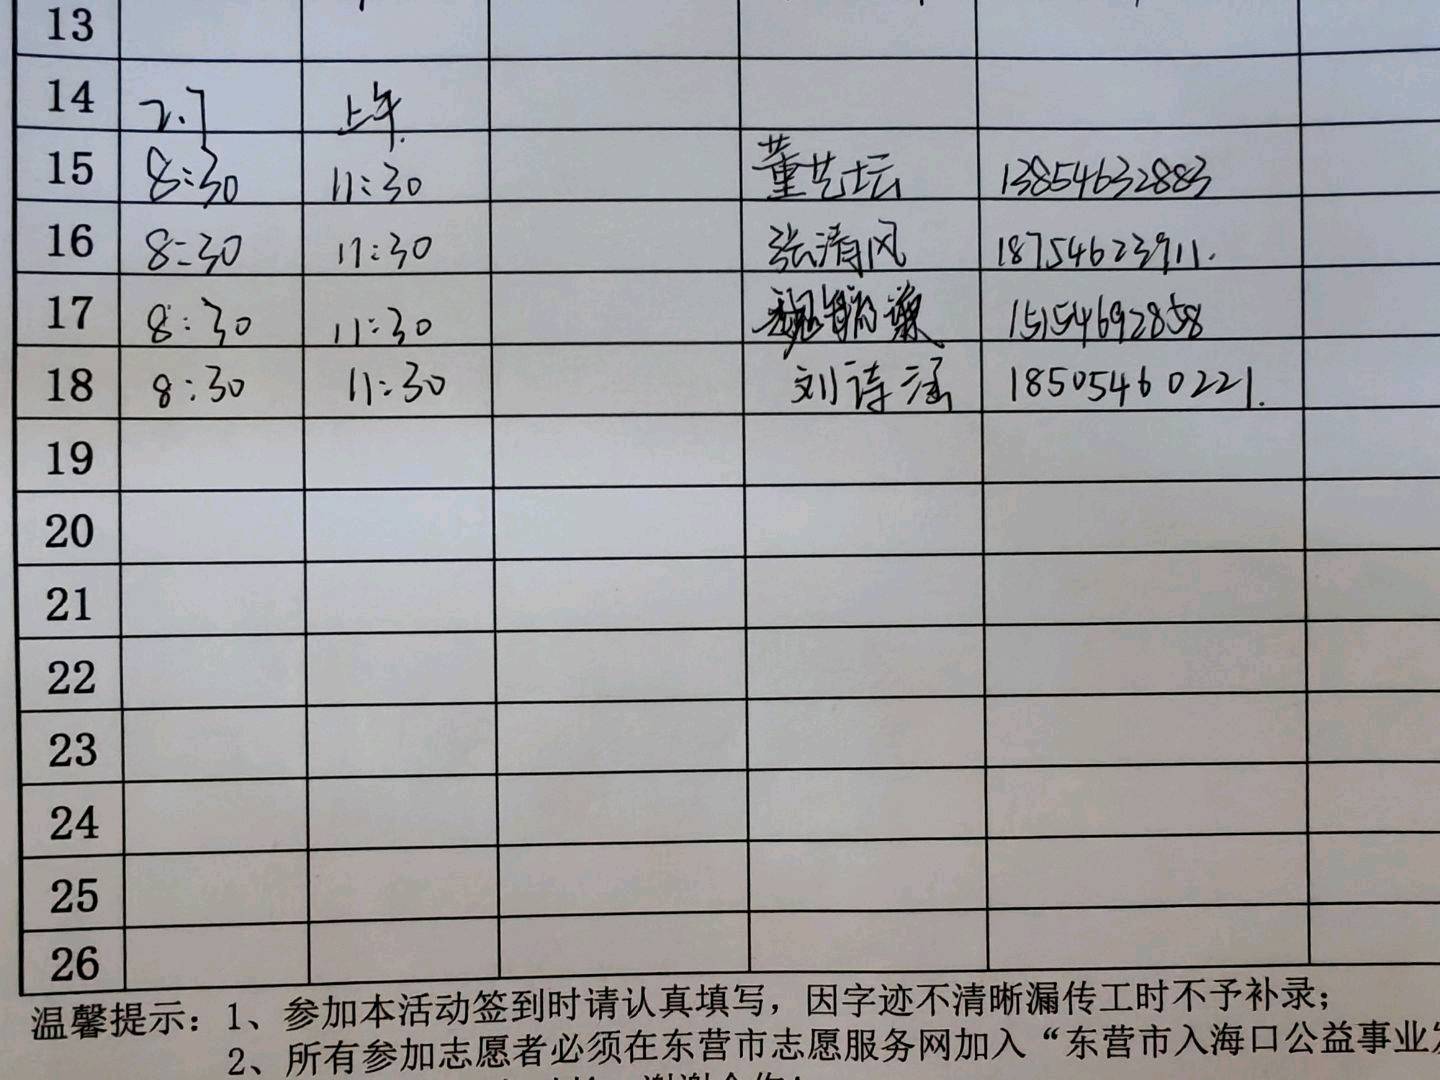 13
14 2.7 上午.
15 8:30 11:30 董艺坛 13854632883
16 8:30 11:30 张清风 18754623911.
17 8:30 11:30 15154692858
18 8:30 11:30 刘诗涵 18505460221.
19
20
21
22
23
24
25
26
温馨提示：1、参加本活动签到时请认真填写，因字迹不清晰漏传工时不予补录；
2、所有参加志愿者必须在东营市志愿服务网加入“东营市入海口公益事业发